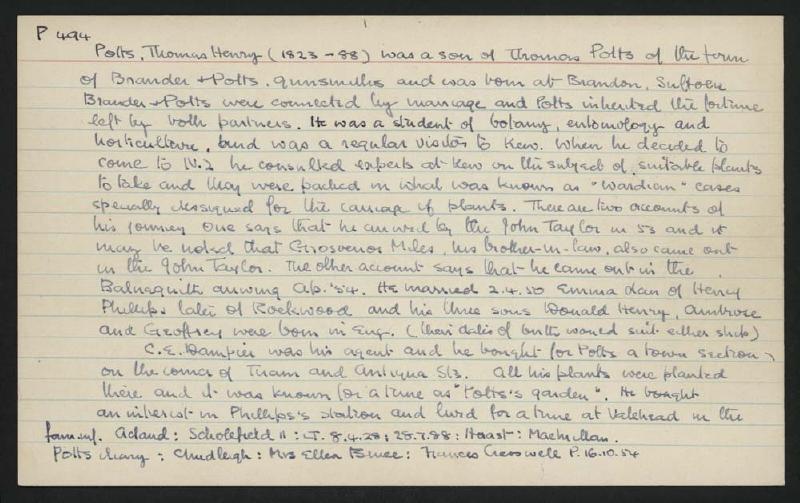 P 494
Potts, Thomas Henry (1823-88) was a son of Thomas Potts of the firm
of Brander + Potts, gunsmiths and was born at Brandon, Suffolk
Brander + Potts were connected by marriage and Potts inherited the fortune
left by both partners. He was a student of botany, entomology and
horticulture, and was a regular visitor to Kew. When he decided to
come to N.Z he consulted experts at Kew on the subject of suitable plants
to take and they were packed in what was known as "Wardian" cases
specially designed for the carriage of plants. There are two accounts of
his journey One says that he arrived by the John Taylor in 53 and it
may be noted that Grosvenor Miles, his brother-in-law, also came out
in the John Taylor. The other account says that he came out in the
Balnaguith arriving Ap. '54. He married 2.4.50 Emma dau of Henry
Phillips later of Rockwood and his three sons Donald Henry, Ambrose
and Geoffrey were born in Eng. (their dates of births would suit either ship)
C.E. Dampier was his agent and he bought for Potts a town section
on the corner of Tuam and Antigua Sts. All his plants were planted
there and it was known for a time as "Potts's garden". He bought
an interest in Phillips's station and lived for a time at Valehead in the
fam. inf. Acland: Scholefield II: LT. 8.4.28; 28.7.88: Haast: Macmillan.
Potts diary: Chudleigh: Mrs Ellen Bruce: Frances Cresswell P. 16.10.54